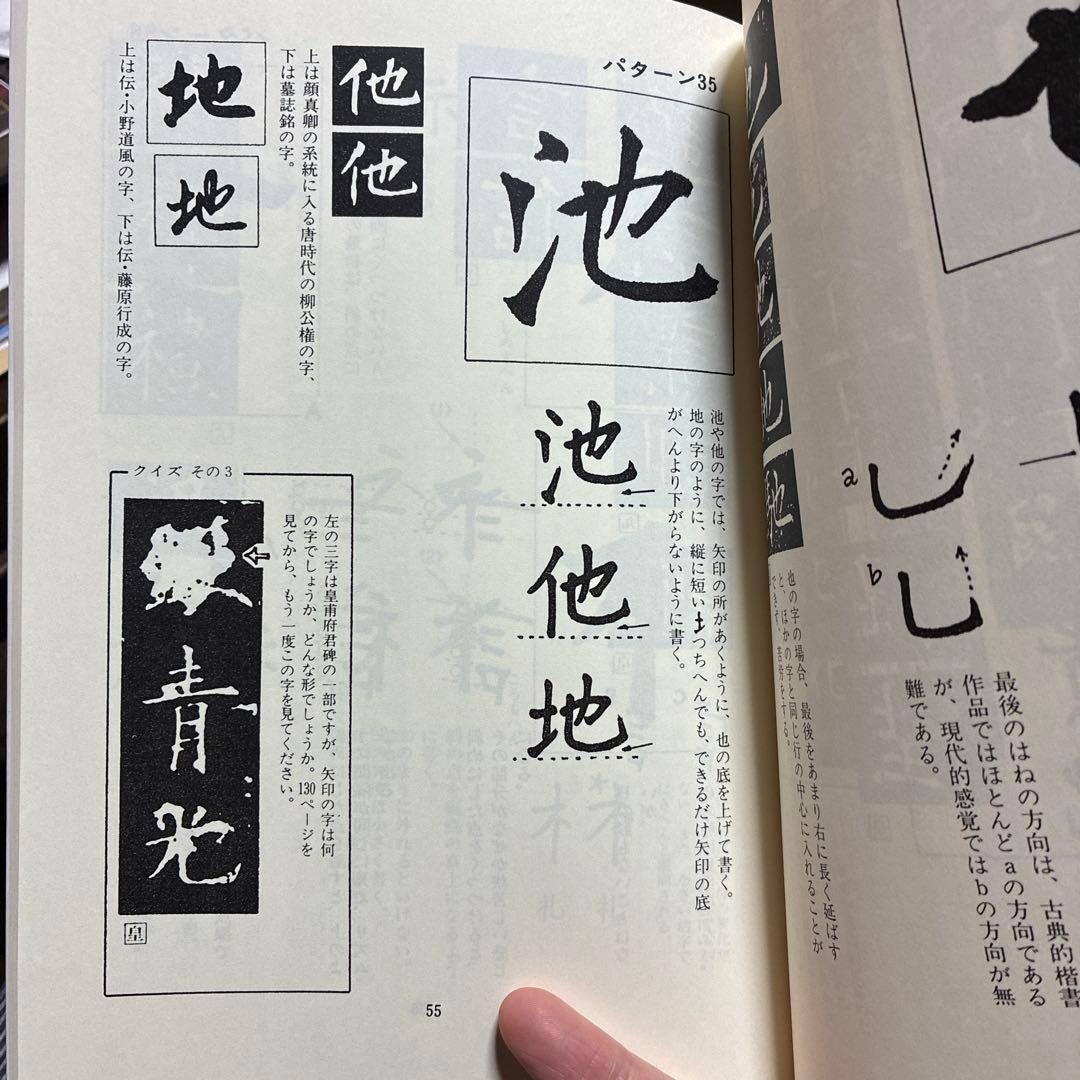 最後のはねの方向は、古典的楷書
作品ではほとんどaの方向である
が、現代的感覚ではbの方向が無
難である。
a
b
也の字の場合、最後をあまり右に長く延ばす
と、ほかの字と同じ行の中心に入れることが
できず、苦労をする。
パターン35
池
池や他の字では、矢印の所があくように、也の底を上げて書く。
地の字のように、縦に短い土つちへんでも、できるだけ矢印の底
がへんより下がらないように書く。
池
他
地
他
他
上は顔真卿の系統に入る唐時代の柳公権の字、
下は墓誌銘の字。
地
地
上は伝・小野道風の字、下は伝・藤原行成の字。
クイズ その3
左の三字は皇甫府君碑の一部ですが、矢印の字は何
の字でしょうか、どんな形でしょうか。130ページを
見てから、もう一度この字を見てください。
青
光
皇
55